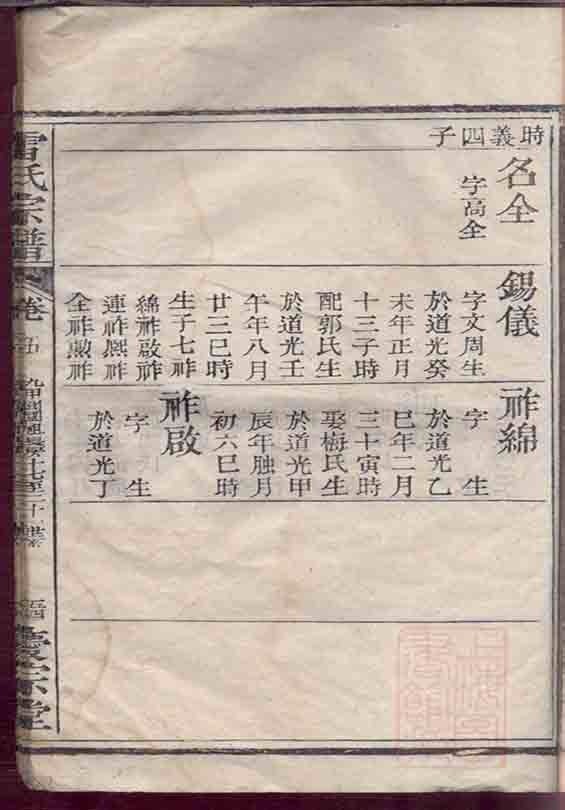 時義四子
名全
字高全
錫儀
字文周生
於道光癸
未年正月
十三子時
配郭氏生
於道光壬
午年八月
廿三巳時
生子七祚
綿祚啟祚
連祚熈祚
全祚勲祚
祚綿
字　生
於道光乙
巳年二月
三十寅時
娶梅氏生
於道光甲
辰年月
初六巳時
祚啟
字　生
於道光丁
雷氏宗譜
卷五
宗堂